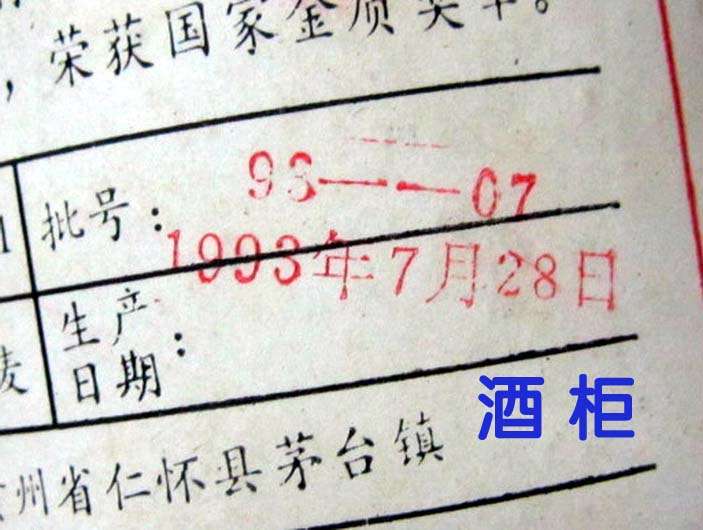 ，荣获国家金质奖章。
批号：93——07
1993年7月28日
生产
日期：
酒柜
州省仁怀县茅台镇